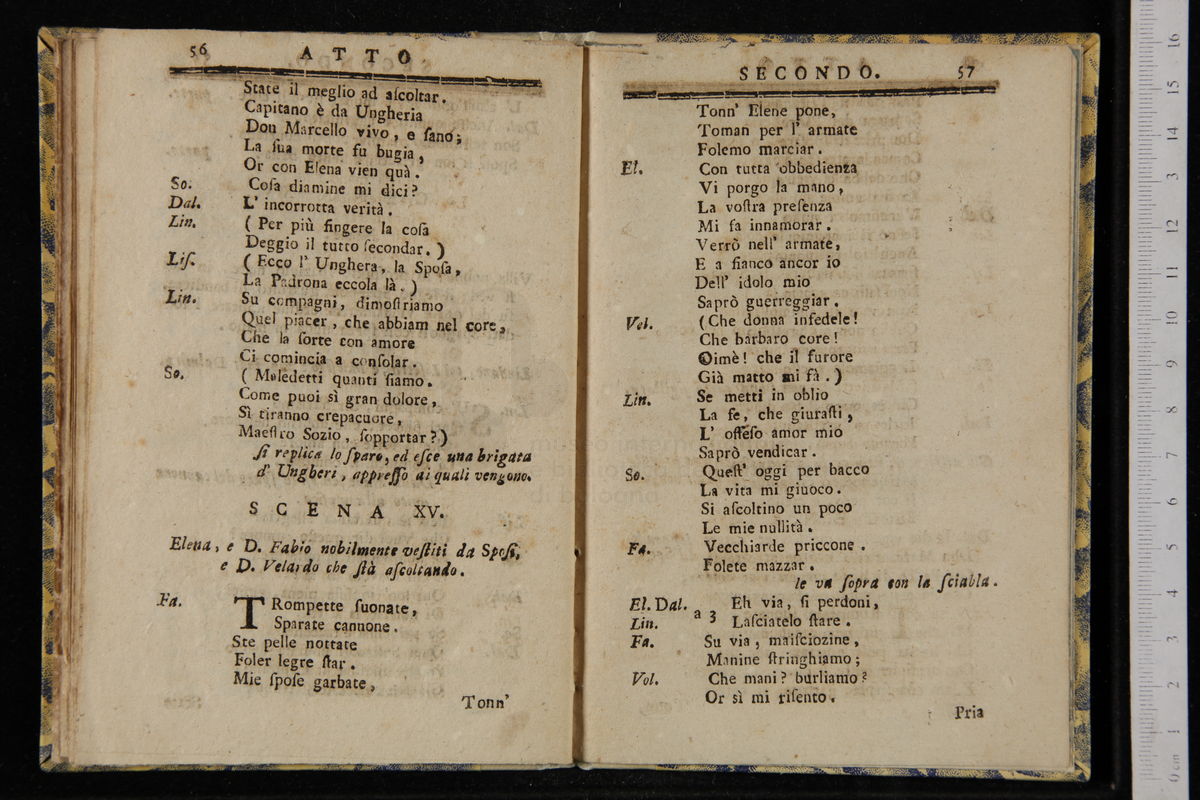 56 ATTO
State il meglio ad aſcoltar.
Capitano è da Ungheria
Don Marcello vivo, e ſano;
La ſua morte fu bugia,
Or con Elena vien quà.
So. Coſa diamine mi dici?
Dal. L' incorrotta verità.
Lin. ( Per più fingere la coſa
Deggio il tutto ſecondar. )
Liſ. ( Ecco l' Unghera, la Spoſa,
La Padrona eccola là. )
Lin. Su compagni, dimoſtriamo
Quel piacer, che abbiam nel core,
Che la ſorte con amore
Ci comincia a conſolar.
So. ( Maledetti quanti ſiamo.
Come puoi sì gran dolore,
Sì tiranno crepacuore,
Maeſtro Sozio, ſopportar? )
ſi replica lo ſparo, ed eſce una brigata
d' Ungheri, appreſſo ai quali vengono.
SCENA XV.
Elena, e D. Fabio nobilmente veſtiti da Spoſi,
e D. Velardo che ſtà aſcoltando.
Fa. TRompette ſuonate,
Sparate cannone.
Ste pelle nottate
Foler legre ſtar.
Mie ſpoſe garbate,
Tonn'
SECONDO. 57
Tonn' Elene pone,
Toman per l' armate
Folemo marciar.
El. Con tutta obbedienza
Vi porgo la mano,
La voſtra preſenza
Mi fa innamorar.
Verrò nell' armate,
E a fianco ancor io
Dell' idolo mio
Saprò guerreggiar.
Vel. (Che donna infedele!
Che bárbaro core!
Oimè! che il furore
Già matto mi fà. )
Lin. Se metti in oblio
La fe, che giuraſti,
L' offeſo amor mio
Saprò vendicar.
So. Queſt' oggi per bacco
La vita mi giuoco.
Si aſcoltino un poco
Le mie nullità.
Fa. Vecchiarde priccone.
Folete mazzar.
le va ſopra con la ſciabla.
El. Dal. a 3 Eh via, ſi perdoni,
Lin. Laſciatelo ſtare.
Fa. Su via, maiſciozine,
Manine ſtringhiamo;
Vol. Che mani? burliamo?
Or sì mi riſento.
Pria